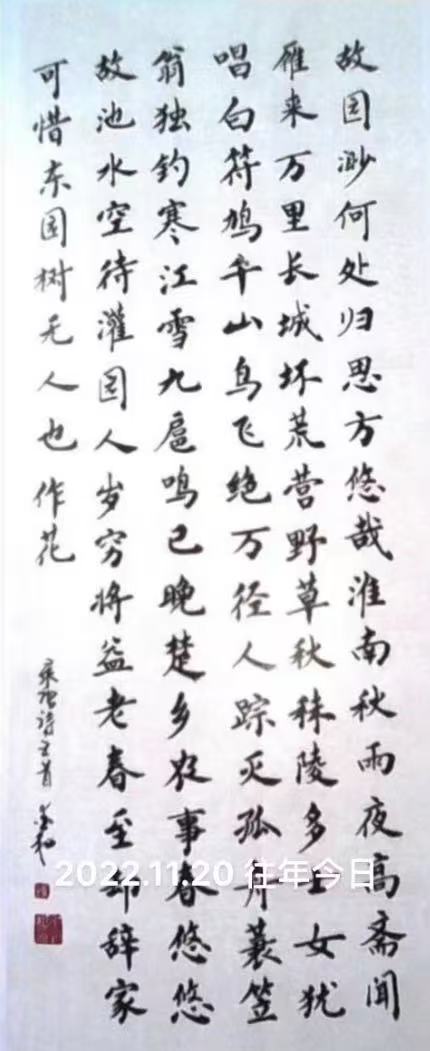 故园渺何处归思方悠哉淮南秋雨夜高斋闻
雁来万里长城坏荒营野草秋秣陵多士女犹
唱白符鸠千山鸟飞绝万径人踪灭孤舟蓑笠
翁独钓寒江雪九扈鸣已晚楚乡农事春悠悠
故池水空待灌园人岁穷将益老春至却辞家
可惜东园树无人也作花
录唐诗五首
2022.11.20 往年今日